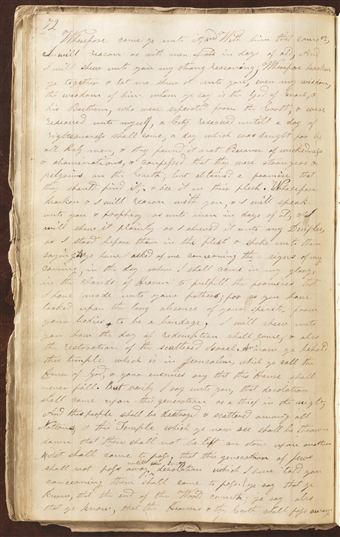 72
Wherefore come ye unto it and With him that cometh
I will reason as with men in days of old, And
I will shew unto you my strong reasoning, Wherefore hearken
ye together & let me shew it unto you, even my wisdom,
the wisdom of him whom ye say is the God of Enoch, &
his Brethren, who were seperated from the Earth, & were
received unto myself, a City reserved untill a day of
righteousness shall come, a day which was sought for by
all Holy men, & they found it not because of wickedness
& abominations, & confessed that they were strangers &
pilgrims on the Earth, but obtained a promise that
they should find it, & see it in their flesh. Wherefore
hearken & I will reason with you, & I will speak
unto you & prophesy as unto men in days of old, & I
will shew it plainly as I shewed it unto my Disciples
as I stood before them in the flesh & spake unto them
saying as ye have asked of me concerning the signs of my
coming, in the day when I shall come in my glory
in the clouds of Heaven to fulfill the promises that
I have made unto your fathers, for as you have
looked upon the long absence of your spirits from
your bodies to be a bondage, I will shew unto
you how the day of redemption shall come, & also
the restoration of the scattered Israel. And now ye behold
this temple which is in Jerusalem, which ye call the
House of God, & your enemies say that this House shall
never fall. But verily I say unto you, that desolation
shall come upon this generation as a thief in the night
And this people shall be destroyed & scattered among all
Nations, & this Temple which ye now see shall be thrown
down that there shall not be left one stone upon another
& it shall come to pass, that this generation of Jews
shall not pass away, untill every desolation which I have told you
concerning them shall come to pass. Ye say that ye
know, that the end of the World cometh, ye say also
that ye know, that the Heavens & the Earth shall pass away